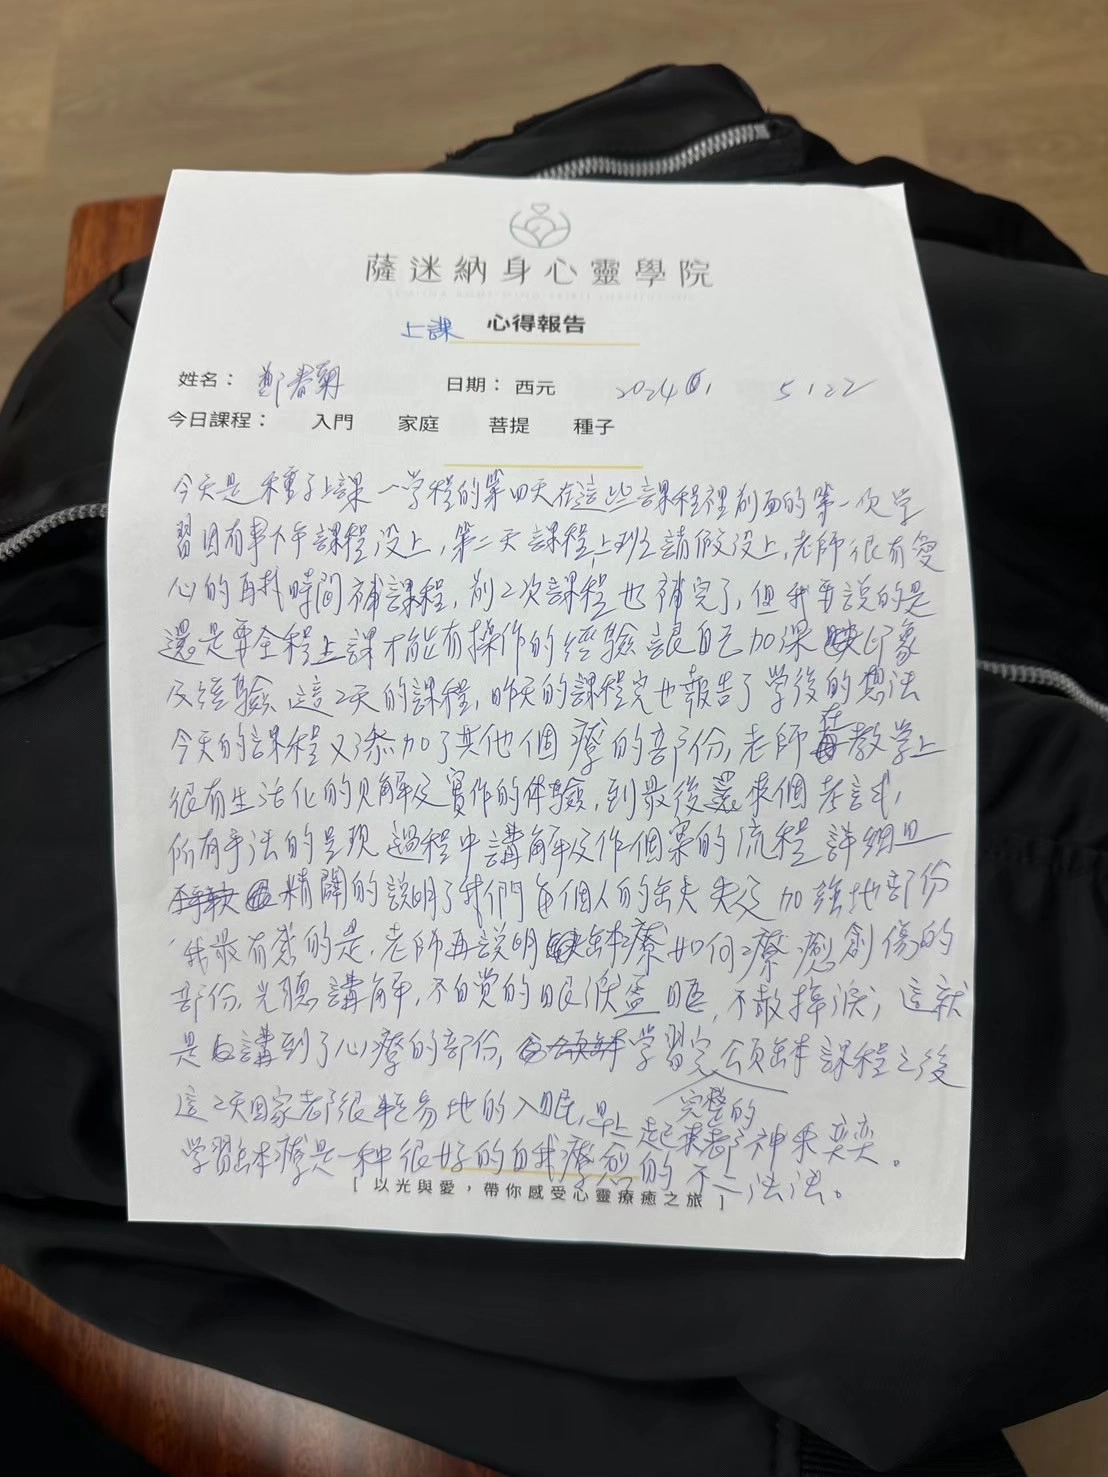 薩迷納身心靈學院
上課 心得報告
姓名： 鄭春菊 日期： 西元 2024 5 / 22
今日課程： 入門 家庭 菩提 種子
今天是種子上課一学程的第四天在這些課程裡前面的第一次学
習因有事下午課程没上，第二天課程上班請假没上，老師很有愛
心的再找時間補課程，前2次課程也補完了，但我要說的是
還是要全程上課才能有操作的經驗讓自己加深印象
及經驗 這2天的課程，昨天的課程完也報告了学後的想法
今天的課程又添加了其他個療的部份，老師在教学上
很有生活化的見解及實作的体驗，到最後還來個考試，
所有手法的呈現 過程中講解及作個案的流程詳細且
精闢的說明了我們每個人的缺失 加強地部份
我最有感的是，老師再說明缽療如何療癒創傷的
部份，光聽講解，不自覚的眼淚盈眶，不敢掉淚，這就
是講到了心療的部份，学習完頌缽課程之後
完整的
這2天回家都很輕易地的入眠，早上起來都神采奕奕。
学習缽療是一种很好的自我療愈的不二法法。
[ 以光與愛，帶你感受心靈療癒之旅 ]